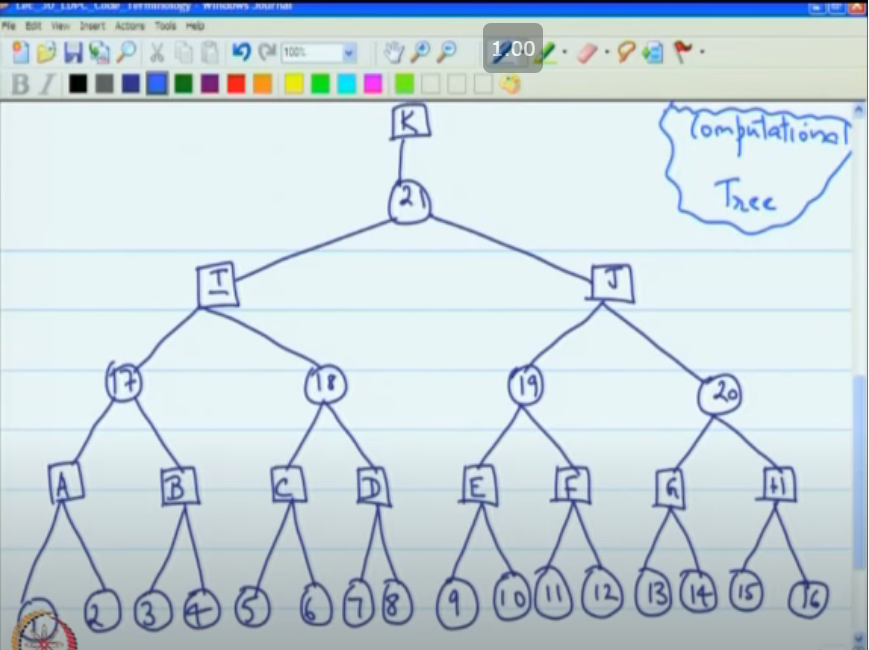 Lec_30_LDPC_Code_Terminology - Windows Journal
File Edit View Insert Actions Tools Help
100%
1.00
B I
K
Computational
Tree
21
I J
17 18 19 20
A B C D E F G H
1 2 3 4 5 6 7 8 9 10 11 12 13 14 15 16